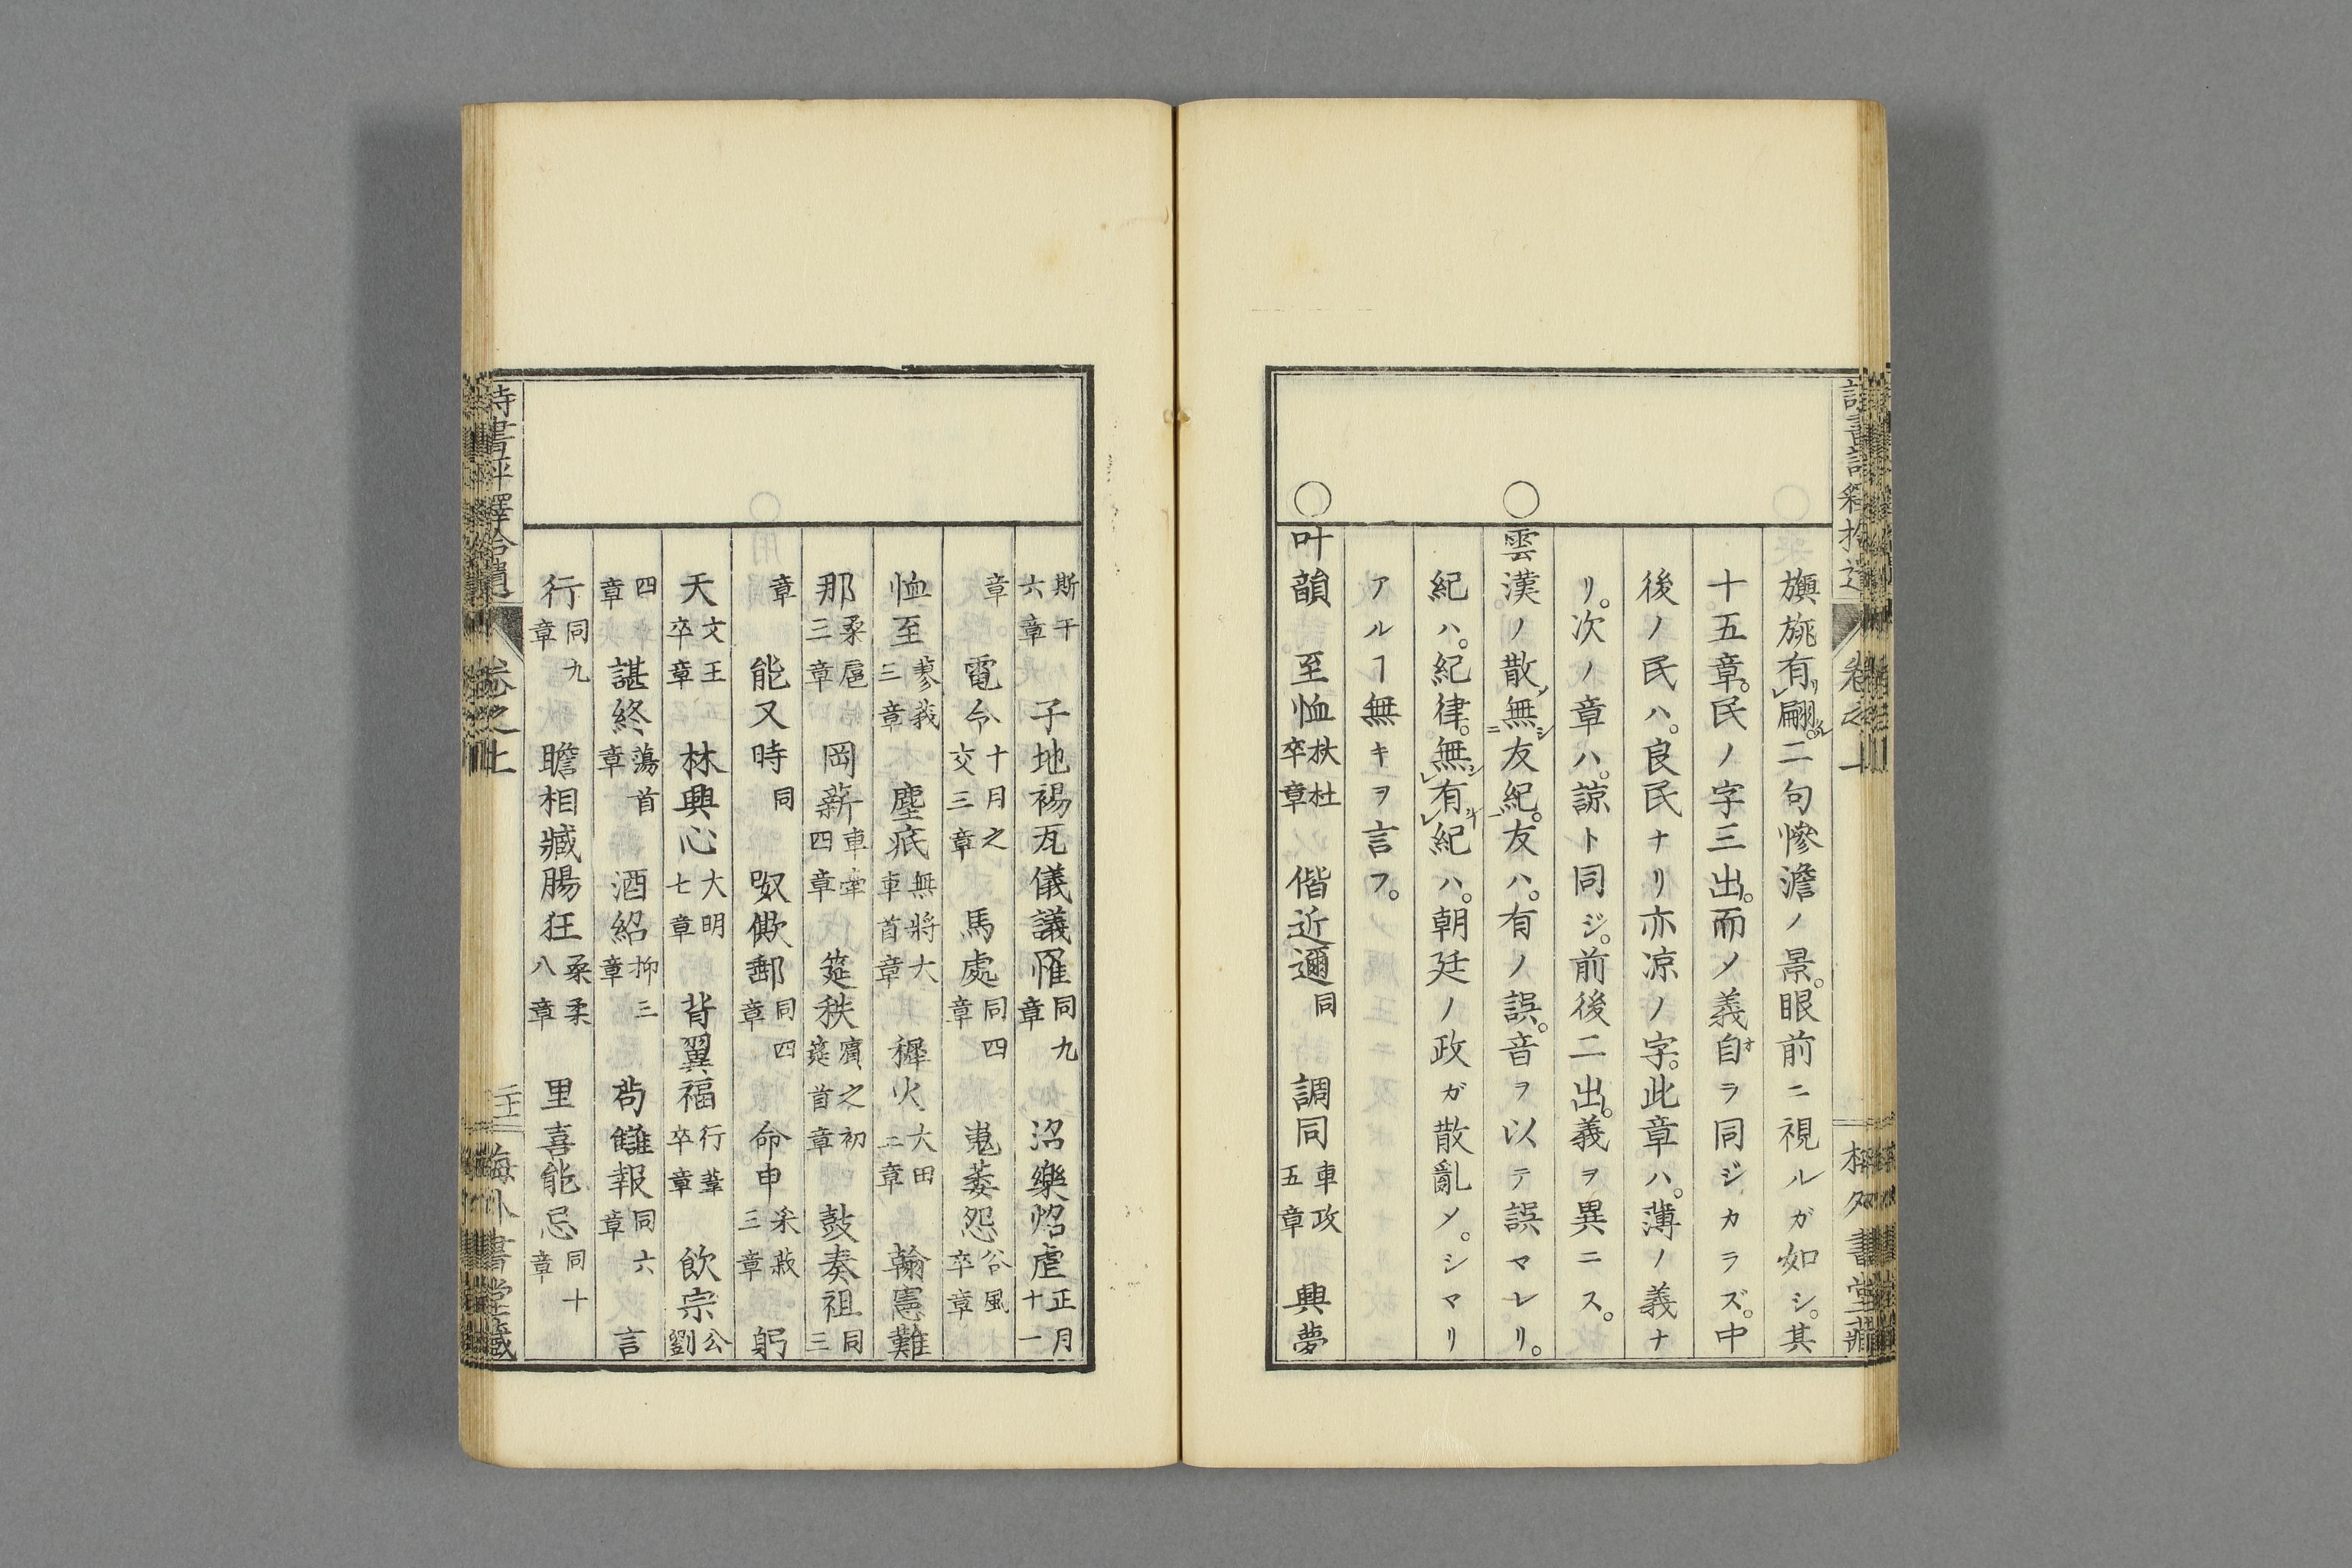 旟旐有翩。二句慘澹ノ景。眼前ニ視ルガ如シ。其
十五章。民ノ字三出。而ノ義自ラ同ジカラズ。中
後ノ民ハ。良民ナリ亦涼ノ字。此章ハ。薄ノ義ナ
リ。次ノ章ハ。諒ト同ジ。前後二出。義ヲ異ニス。
○雲漢ノ散無友紀。友ハ。有ノ誤。音ヲ以テ誤マレリ。
紀ハ。紀律。無有紀ハ。朝廷ノ政ガ散亂メ。シマリ
アルヿ無キヲ言フ。
○叶韻 至恤杕杜卒章 偕近邇同 調同車攻五章 興夢
斯干六章 子地裼瓦儀議罹同九章 沼樂炤虐正月十一
章 電令十月之交三章 馬處同四章 嵬萎怨谷風卒章
恤至蓼莪三章 塵疧無將大車首章 穉火大田二章 翰憲難
那桑扈三章 岡薪車舝四章 筵秩賓之初筵首章 鼓奏祖同三
章 能又時同 呶僛郵同四章 命申采菽三章 躬
天文王卒章 林興心大明七章 背翼福行葦卒章 飲宗公劉
四章 諶終蕩首章 酒紹抑三章 苟讎報同六章 言
行同九章 瞻相臧腸狂桑柔八章 里喜能忌同十章
詩書評釋拾遺 卷之上 海外書堂藏